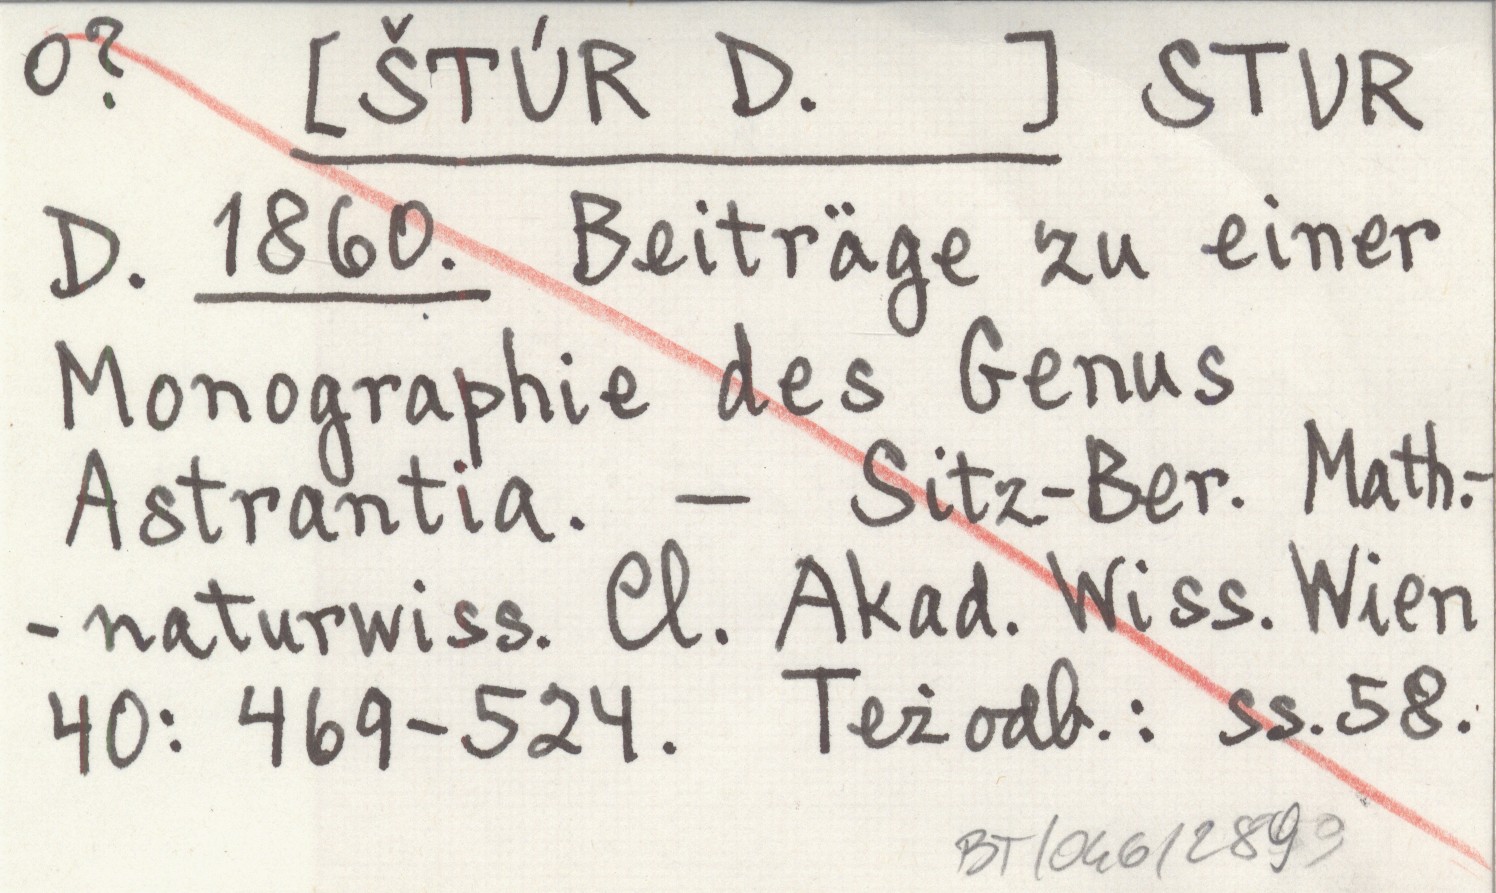 o? [ŠTÚR D. ] STUR
D. 1860. Beiträge zu einer
Monographie des Genus
Astrantia. — Sitz-Ber. Math.-
-naturwiss. Cl. Akad. Wiss. Wien
40: 469-524. Też odb.: ss. 58.
BT/046/2899